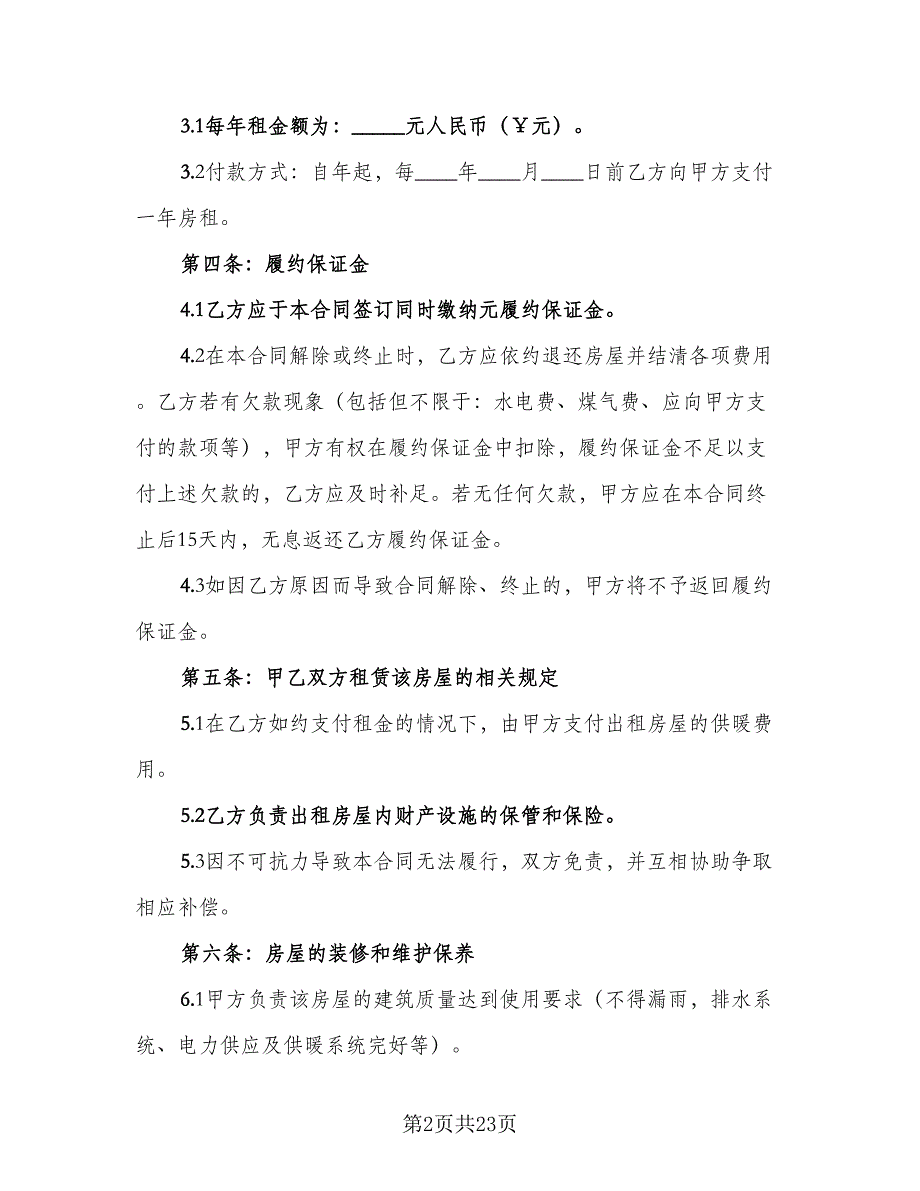 3.1每年租金额为：_____元人民币（￥元）。
3.2付款方式：自年起，每____年____月____日前乙方向甲方支付
一年房租。
第四条：履约保证金
4.1乙方应于本合同签订同时缴纳元履约保证金。
4.2在本合同解除或终止时，乙方应依约退还房屋并结清各项费用
。乙方若有欠款现象（包括但不限于：水电费、煤气费、应向甲方支
付的款项等），甲方有权在履约保证金中扣除，履约保证金不足以支
付上述欠款的，乙方应及时补足。若无任何欠款，甲方应在本合同终
止后15天内，无息返还乙方履约保证金。
4.3如因乙方原因而导致合同解除、终止的，甲方将不予返回履约
保证金。
第五条：甲乙双方租赁该房屋的相关规定
5.1在乙方如约支付租金的情况下，由甲方支付出租房屋的供暖费
用。
5.2乙方负责出租房屋内财产设施的保管和保险。
5.3因不可抗力导致本合同无法履行，双方免责，并互相协助争取
相应补偿。
第六条：房屋的装修和维护保养
6.1甲方负责该房屋的建筑质量达到使用要求（不得漏雨，排水系
统、电力供应及供暖系统完好等）。
第2页共23页